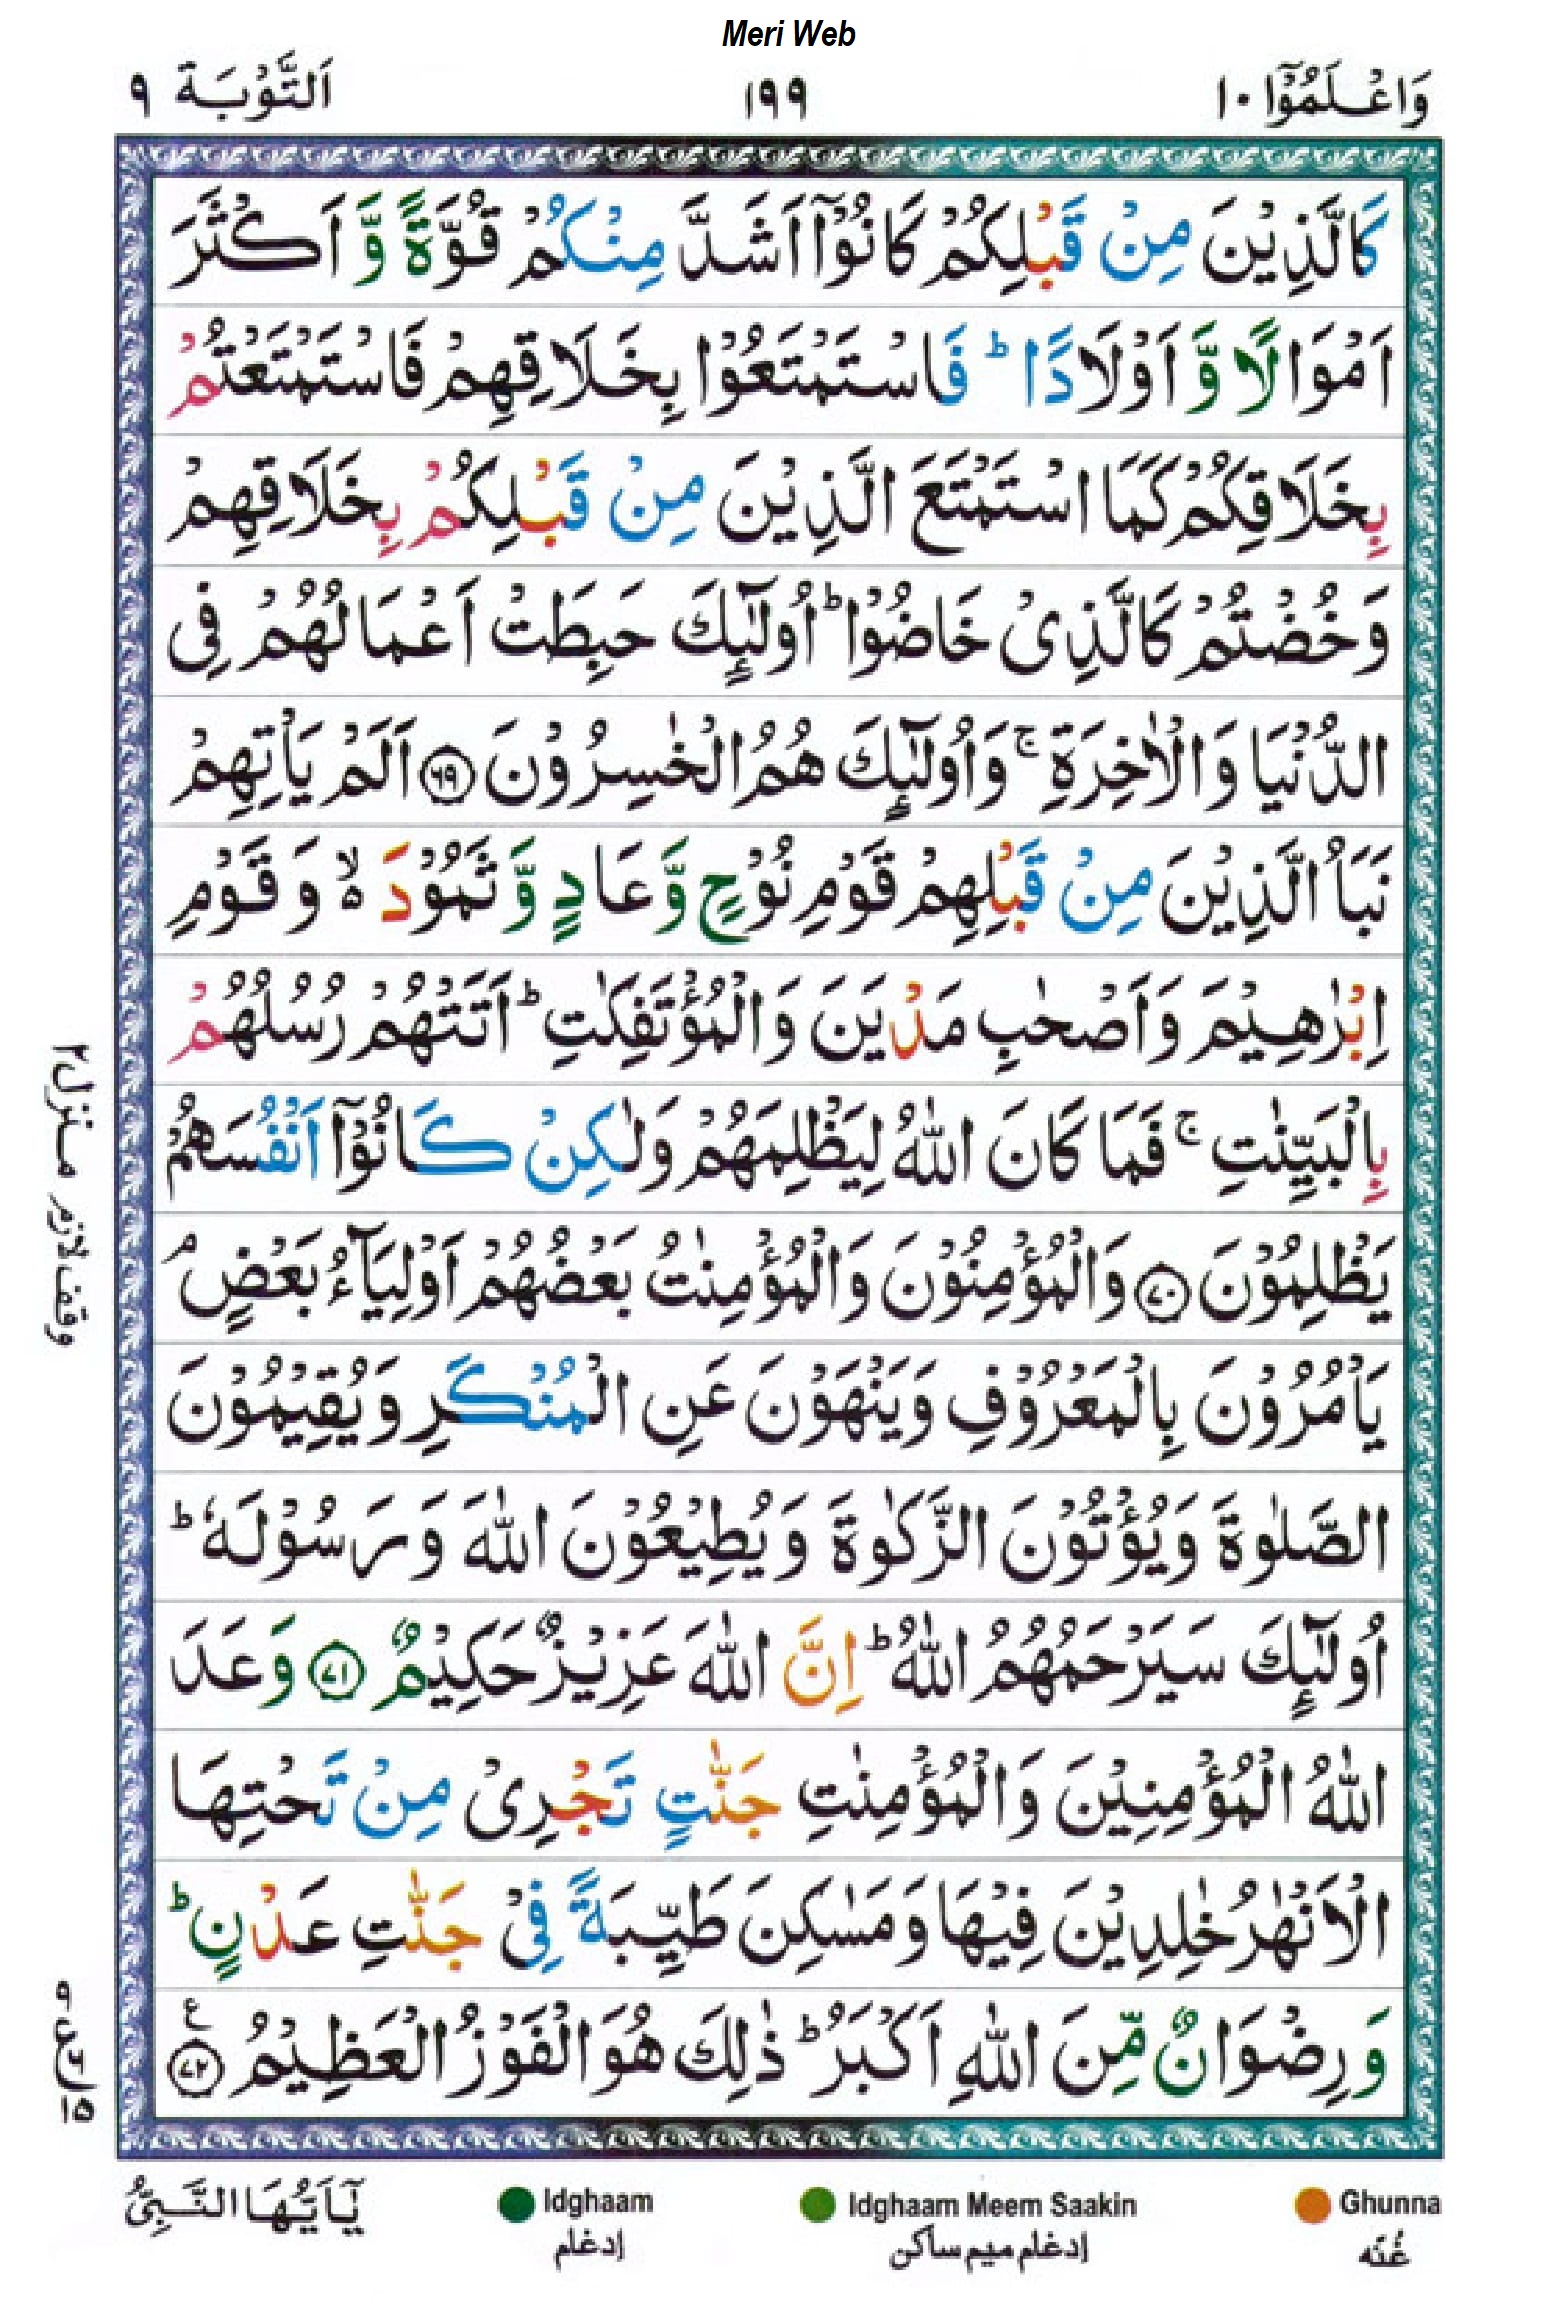 Meri Web
وَاعْلَمُوْۤا ١٠ ١٩٩ اَلتَّوْبَة ٩
كَالَّذِيْنَ مِنْ قَبْلِكُمْ كَانُوْۤا اَشَدَّ مِنْكُمْ قُوَّةً وَّ اَكْثَرَ
اَمْوَالًا وَّ اَوْلَادًا ؕ فَاسْتَمْتَعُوْا بِخَلَاقِهِمْ فَاسْتَمْتَعْتُمْ
بِخَلَاقِكُمْ كَمَا اسْتَمْتَعَ الَّذِيْنَ مِنْ قَبْلِكُمْ بِخَلَاقِهِمْ
وَخُضْتُمْ كَالَّذِیْ خَاضُوْا ؕ اُولٰٓئِكَ حَبِطَتْ اَعْمَالُهُمْ فِی
الدُّنْيَا وَالْاٰخِرَةِ ۚ وَاُولٰٓئِكَ هُمُ الْخٰسِرُوْنَ ۝۶۹ اَلَمْ يَاْتِهِمْ
نَبَاُ الَّذِيْنَ مِنْ قَبْلِهِمْ قَوْمِ نُوْحٍ وَّ عَادٍ وَّ ثَمُوْدَ ۙ۬ وَ قَوْمِ
اِبْرٰهِيْمَ وَاَصْحٰبِ مَدْيَنَ وَالْمُؤْتَفِكٰتِ ؕ اَتَتْهُمْ رُسُلُهُمْ
بِالْبَيِّنٰتِ ۚ فَمَا كَانَ اللّٰهُ لِيَظْلِمَهُمْ وَلٰكِنْ كَانُوْۤا اَنْفُسَهُمْ
يَظْلِمُوْنَ ۝۷۰ وَالْمُؤْمِنُوْنَ وَالْمُؤْمِنٰتُ بَعْضُهُمْ اَوْلِيَآءُ بَعْضٍ ۘ
يَاْمُرُوْنَ بِالْمَعْرُوْفِ وَيَنْهَوْنَ عَنِ الْمُنْكَرِ وَيُقِيْمُوْنَ
الصَّلٰوةَ وَيُؤْتُوْنَ الزَّكٰوةَ وَيُطِيْعُوْنَ اللّٰهَ وَرَسُوْلَهٗ ؕ
اُولٰٓئِكَ سَيَرْحَمُهُمُ اللّٰهُ ؕ اِنَّ اللّٰهَ عَزِيْزٌ حَكِيْمٌ ۝۷۱ وَعَدَ
اللّٰهُ الْمُؤْمِنِيْنَ وَالْمُؤْمِنٰتِ جَنّٰتٍ تَجْرِیْ مِنْ تَحْتِهَا
الْاَنْهٰرُ خٰلِدِيْنَ فِيْهَا وَمَسٰكِنَ طَيِّبَةً فِیْ جَنّٰتِ عَدْنٍ ؕ
وَرِضْوَانٌ مِّنَ اللّٰهِ اَكْبَرُ ؕ ذٰلِكَ هُوَ الْفَوْزُ الْعَظِيْمُ ۝۷۲ ع
وقف لازم منزل ۲
يٰۤاَيُّهَا النَّبِیُّ
Idghaam
إدغام
Idghaam Meem Saakin
إدغام ميم ساكن
Ghunna
غُنّه